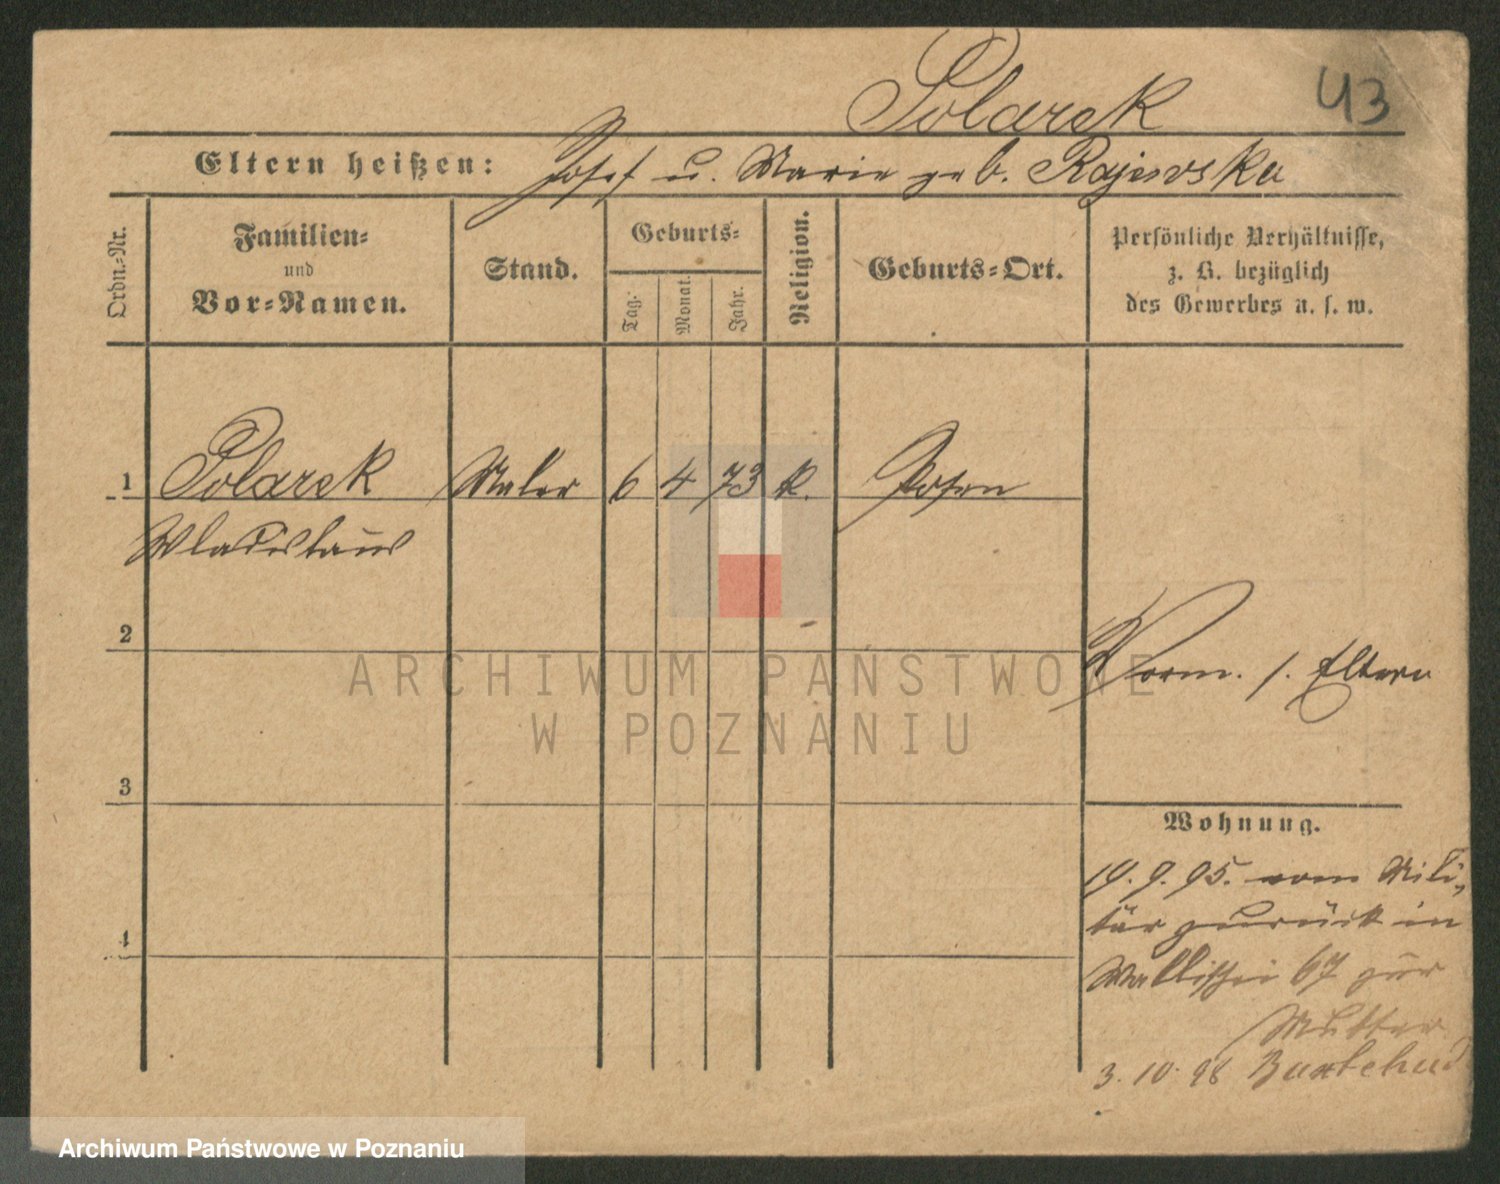 Polarek
43
Eltern heißen: Josef u. Marie geb. Rajewska
Ordn.-Nr.
Familien-
und
Vor-Namen.
Stand.
Geburts-
Tag.
Monat.
Jahr.
Religion.
Geburts-Ort.
Persönliche Verhältnisse,
z. B. bezüglich
des Gewerbes u. s. w.
1 Polarek Maler 6 4 73 k. Posen
Wladislaus
2
Vorm. s. Eltern
3
Wohnung.
19.9.95. vom Mili-
tär zurück in
Wallischei 67 zur
Mutter
4
3.10.98 Buxtehud
ARCHIWUM PAŃSTWOWE
W POZNANIU
Archiwum Państwowe w Poznaniu